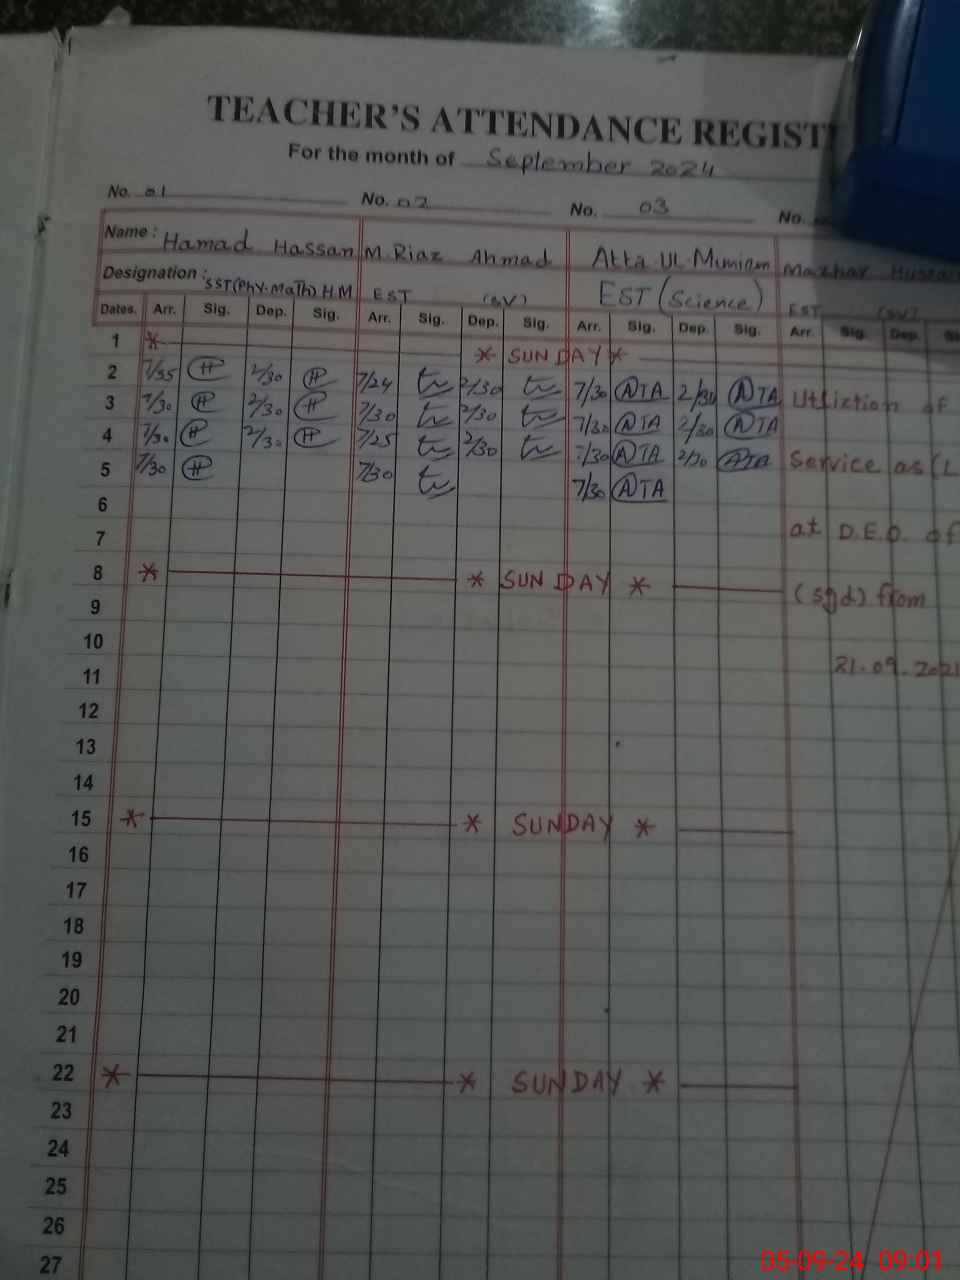 TEACHER'S ATTENDANCE REGIST
For the month of September 2024
No. 01 No. 02 No. 03 No.
Name: Hamad Hassan M. Riaz Ahmad Atta Ul Mazhar
Designation: SST (Phy. Math) H.M EST (SV) EST (Science) EST (SV)
Dates. Arr. Sig. Dep. Sig. Arr. Sig. Dep. Sig. Arr. Sig. Dep. Sig. Arr. Sig. Dep.
1 * * SUNDAY *
2 7/35 H 2/30 H 7/24 2/30 7/30 ATA 2/30 ATA of
3 7/30 H 2/30 H 7/30 2/30 7/30 ATA 2/30 ATA
4 7/30 H 2/30 H 7/25 2/30 7/30 ATA 2/30 ATA Service as (L
5 7/30 H 7/30 7/30 ATA
6
7 at D.E.O. of
8 * * SUNDAY *
9 (sgd) from
10
11 21.09.2021
12
13
14
15 * * SUNDAY *
16
17
18
19
20
21
22 * * SUNDAY *
23
24
25
26
27
05-09-24 09:01